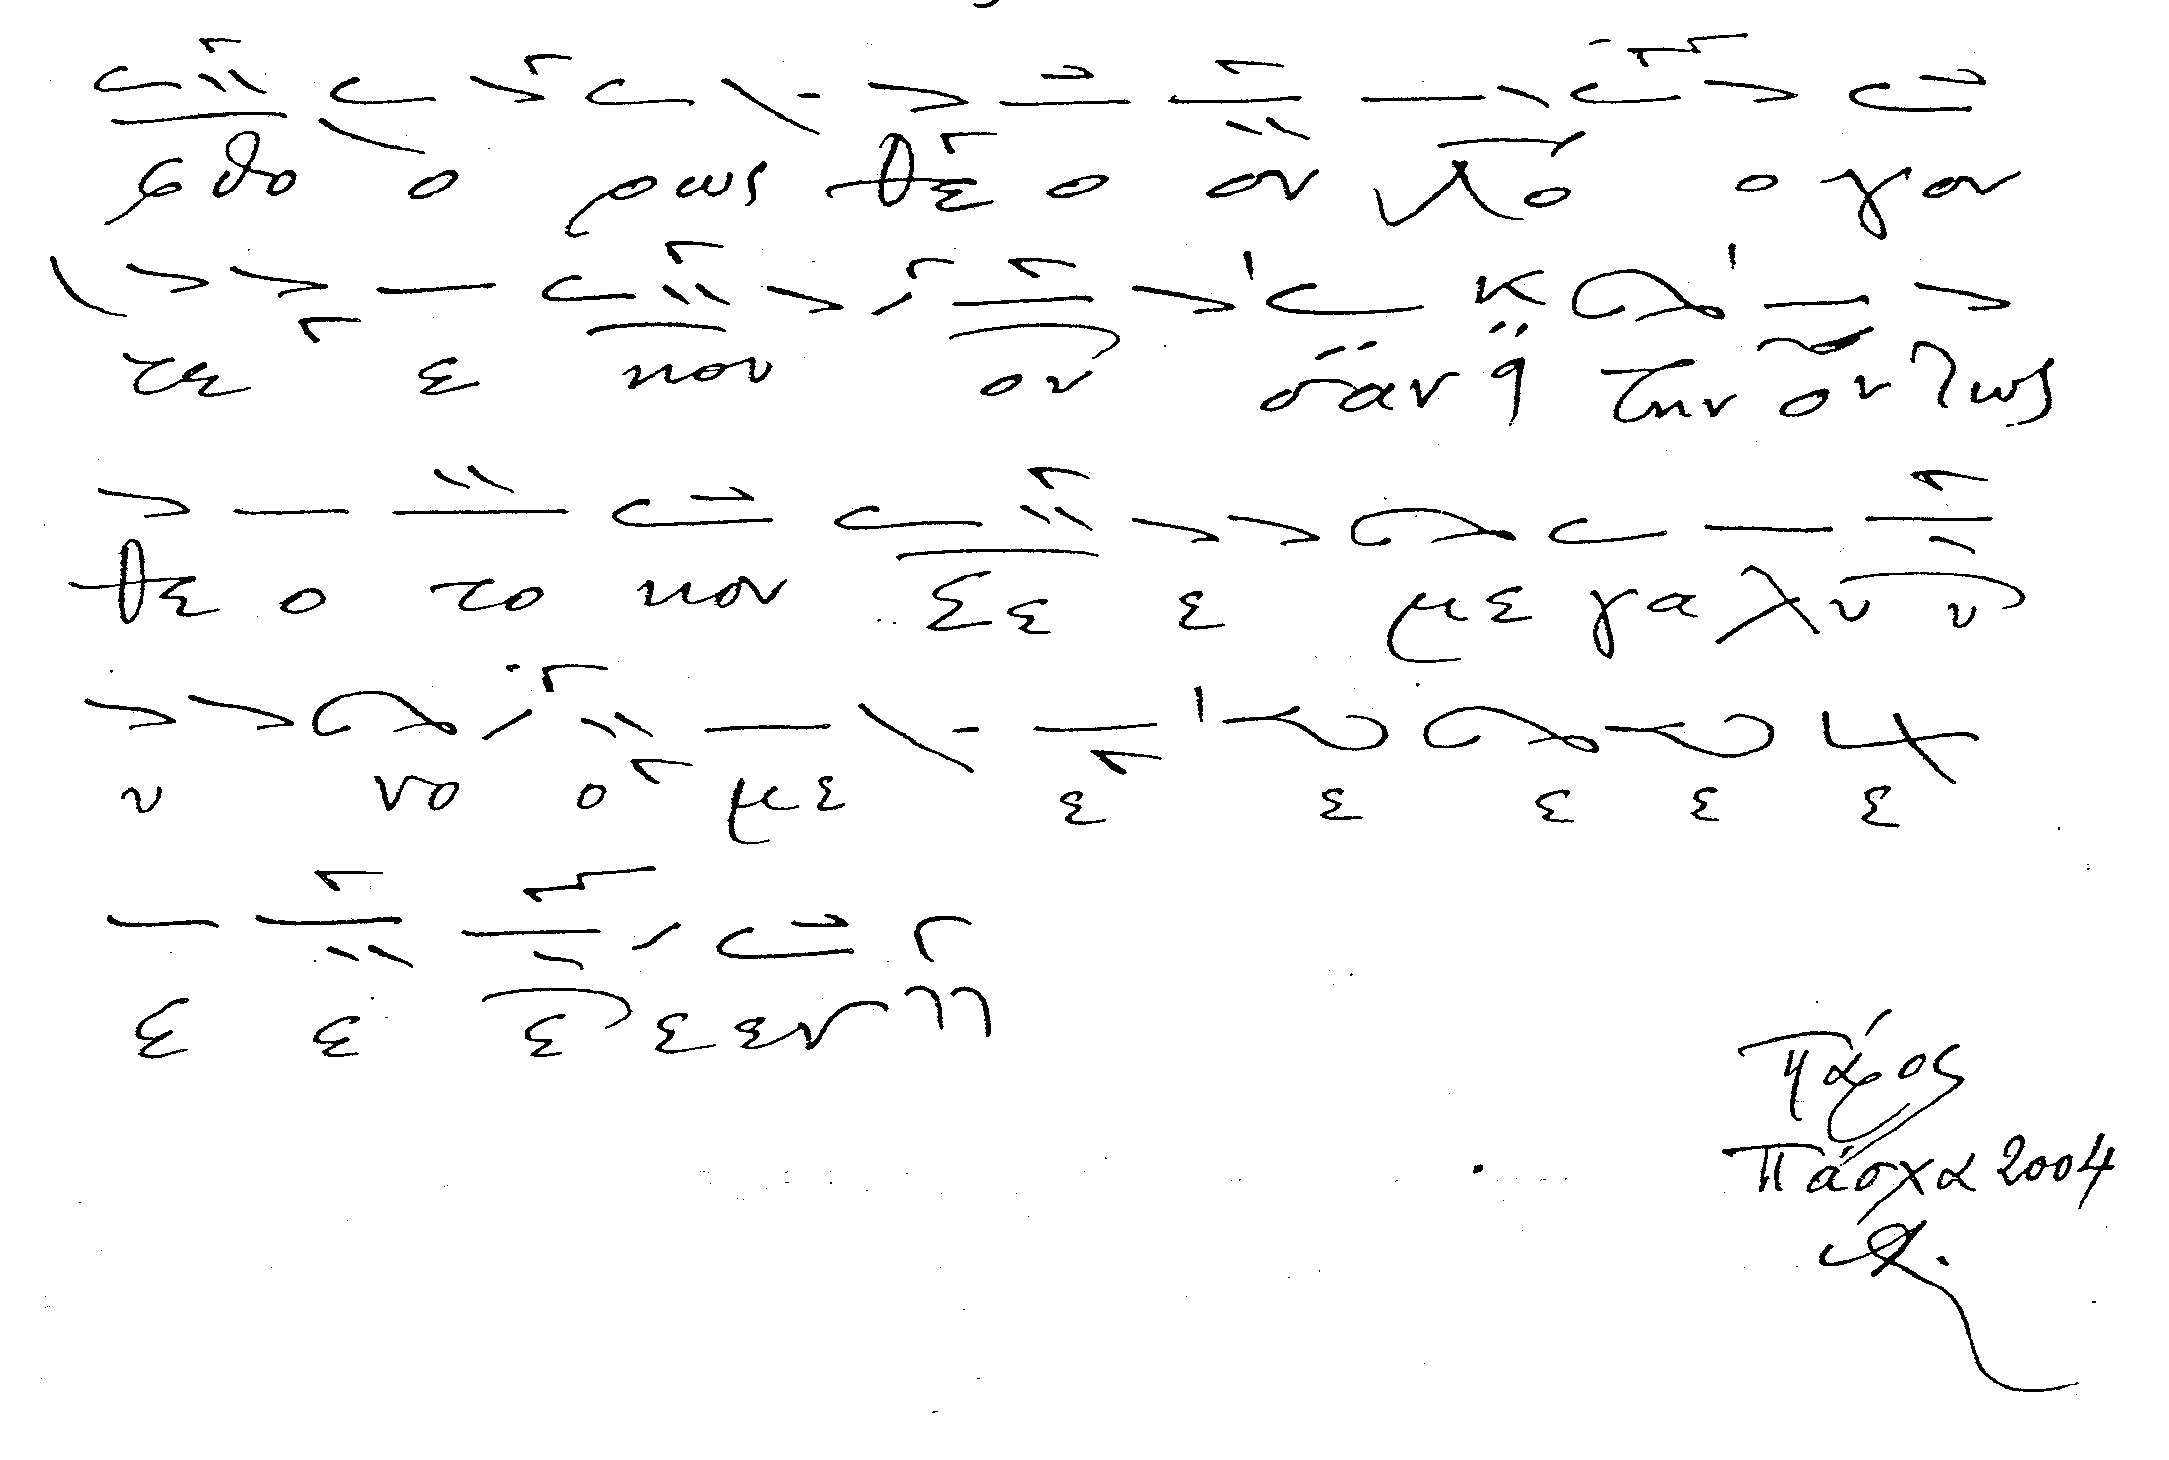 φθο ο ρως θε ο ου λο ο γον
τε ε κου ου σαν την ον τως
θε ο το κον Σε ε με γα λυ υ
υ νο ο με ε ε ε ε ε
ε ε ε ε εν
Πάφος
Πάσχα 2004